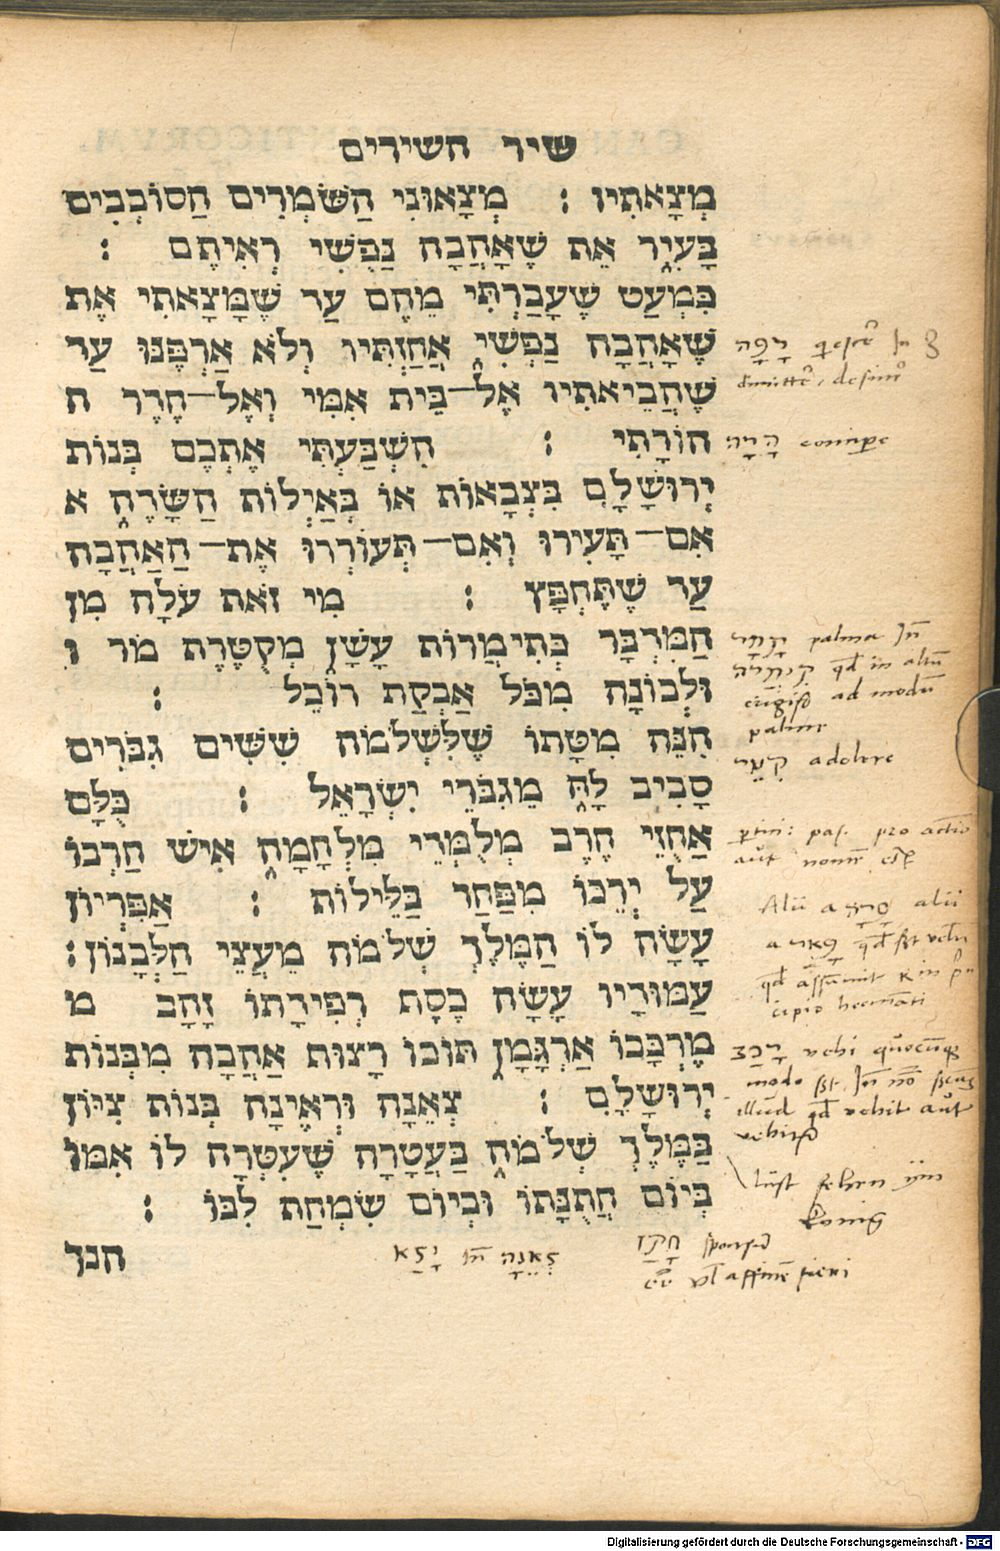 שיר השירים
מְצָאתִיו : מְצָאוּנִי הַשֹּׁמְרִים הַסּוֹבְבִים
בָּעִיר אֵת שֶׁאָהֲבָה נַפְשִׁי רְאִיתֶם :
כִּמְעַט שֶׁעָבַרְתִּי מֵהֶם עַד שֶׁמָּצָאתִי אֶת
שֶׁאָהֲבָה נַפְשִׁי אֲחַזְתִּיו וְלֹא אַרְפֶּנּוּ עַד
שֶׁהֲבֵיאתִיו אֶל־בֵּית אִמִּי וְאֶל־חֶדֶר ה
הוֹרָתִי : הִשְׁבַּעְתִּי אֶתְכֶם בְּנוֹת
יְרוּשָׁלִָם בִּצְבָאוֹת אוֹ בְּאַיְלוֹת הַשָּׂדֶה א
אִם־תָּעִירוּ וְאִם־תְּעוֹרְרוּ אֶת־הָאַהֲבָה
עַד שֶׁתֶּחְפָּץ : מִי זֹאת עֹלָה מִן
הַמִּדְבָּר כְּתִימֲרוֹת עָשָׁן מְקֻטֶּרֶת מֹר ו
וּלְבוֹנָה מִכֹּל אַבְקַת רוֹכֵל :
הִנֵּה מִטָּתוֹ שֶׁלִּשְׁלֹמֹה שִׁשִּׁים גִּבֹּרִים
סָבִיב לָהּ מִגִּבֹּרֵי יִשְׂרָאֵל : כֻּלָּם
אֲחֻזֵי חֶרֶב מְלֻמְּדֵי מִלְחָמָה אִישׁ חַרְבּוֹ
עַל יְרֵכוֹ מִפַּחַד בַּלֵּילוֹת : אַפִּרְיוֹן
עָשָׂה לוֹ הַמֶּלֶךְ שְׁלֹמֹה מֵעֲצֵי הַלְּבָנוֹן :
עַמּוּדָיו עָשָׂה כֶסֶף רְפִידָתוֹ זָהָב מ
מֶרְכָּבוֹ אַרְגָּמָן תּוֹכוֹ רָצוּף אַהֲבָה מִבְּנוֹת
יְרוּשָׁלִָם : צְאֶנָה וּרְאֶינָה בְּנוֹת צִיּוֹן
בַּמֶּלֶךְ שְׁלֹמֹה בַּעֲטָרָה שֶׁעִטְּרָה לּוֹ אִמּוֹ
בְּיוֹם חֲתֻנָּתוֹ וּבְיוֹם שִׂמְחַת לִבּוֹ :
הנך
רָפָה
הָרָה concipe
palma
in altū
ad modū
palme
קִטֵּר adolere
pas. pro actio
aut
Alii a alii
רָכַב vehi
modo
illud vehit aut
lüst sehen
König
צְאֶנָה יָצָא
חָתַן
Digitalisierung gefördert durch die Deutsche Forschungsgemeinschaft - DFG